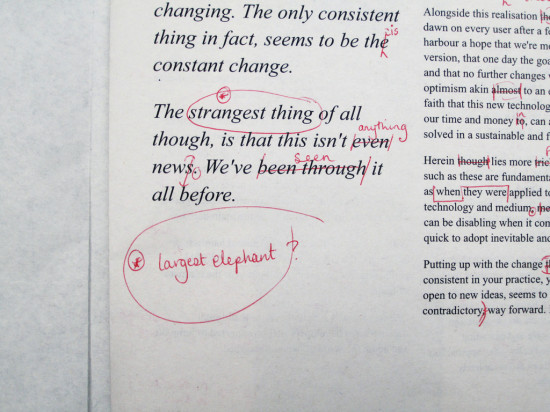 changing. The only consistent
is
thing in fact, seems to be the
constant change.
The strangest thing of all
anything
though, is that this isn't even
seen
news. We've been through it
all before.
* largest elephant ?
Alongside this realisation
dawn on every user after a
harbour a hope that we're
version, that one day the
and that no further changes
optimism akin almost to an
faith that this new
our time and money to, can
solved in a sustainable and
Herein though lies more
such as these are
as when they were applied
technology and medium,
can be disabling when it
quick to adopt inevitable and
Putting up with the change
consistent in your practice,
open to new ideas, seems to
contradictory way forward.